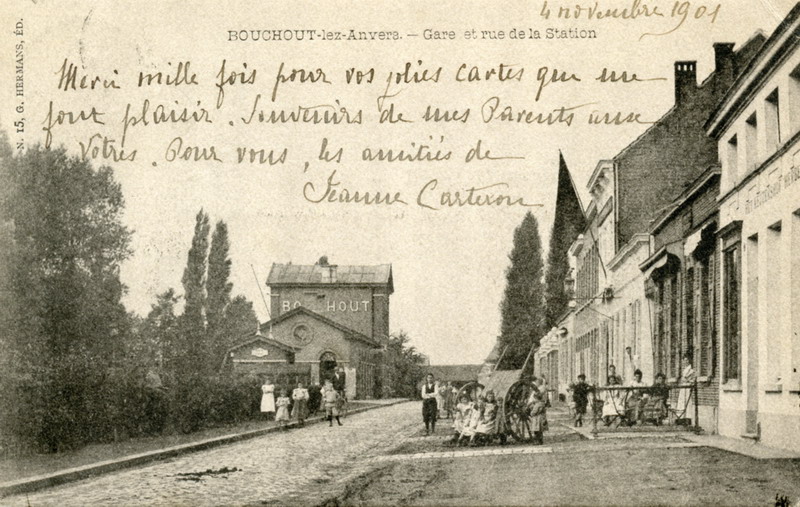 4 novembre 1901
BOUCHOUT-lez-Anvers. — Gare et rue de la Station
N. 15, G. HERMANS, ÉD.
Merci mille fois pour vos jolies cartes qui me
font plaisir. Souvenirs de mes Parents aux
Vôtres. Pour vous, les amitiés de
Jeanne Carteron
BO HOUT